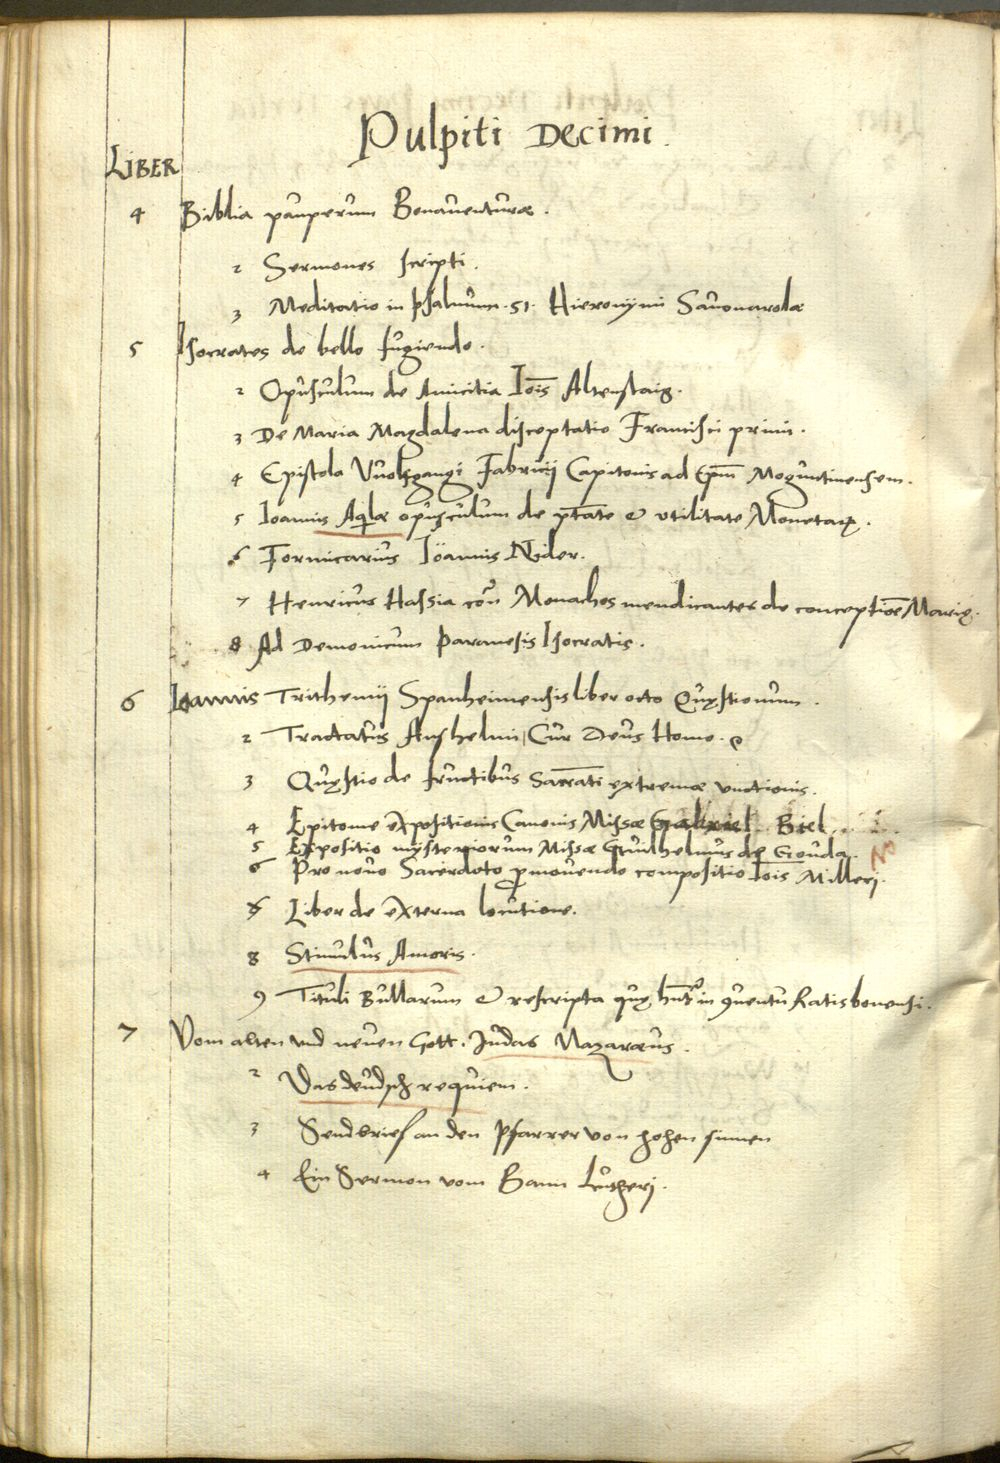 Pulpiti Decimi.
LIBER
4 Biblia pauperum Bonaventuræ.
2 Sermones scripti.
3 Meditatio in psalmum .51. Hieronymi Savonarolæ
5 Isocrates de bello fugiendo.
2 Opusculum de Amicitia Iōis Altenstaig.
3 De Maria Magdalena disceptatio Francisci primi.
4 Epistola Vuolfgangi Fabricij Capitonis ad Epm̄ Moguntinensem.
5 Ioannis Aqilæ opusculum de ptāte & utilitate Monetaꝝ.
6 Formicarius Ioannis Nider.
7 Henricus Hassia cōn Monachos mendicantes de conceptiōe Marię.
8 Ad Demonicum parænesis Isocratis.
6 Ioannis Trithemij Spanheimensis liber octo Quęstionum.
2 Tractatus Anshelmi, Cur Deus Homo.
3 Quęstio de fructibus Sacrāti extremæ unctionis.
4 Epitome expositionis Canonis Missæ Gabriel Biel
5 Expositio mysteriorum Missæ Guilhelmus de Gouda.
6 Pro novo Sacerdote ꝓmovendo compositio Iōis Milleri.
Liber de externa locutione.
8 Stimulus Amoris.
9 Tituli Bullarum & rescripta quę hnt̄r in ꝯventu Ratisbonensi.
7 Vom alten und neuen Gott. Judas Nazaræus.
2 Das deudsch requiem.
3 Sendbrief an den Pfarrer von hohen sinnen
4 Ein Sermon vom Bann Lutheri.